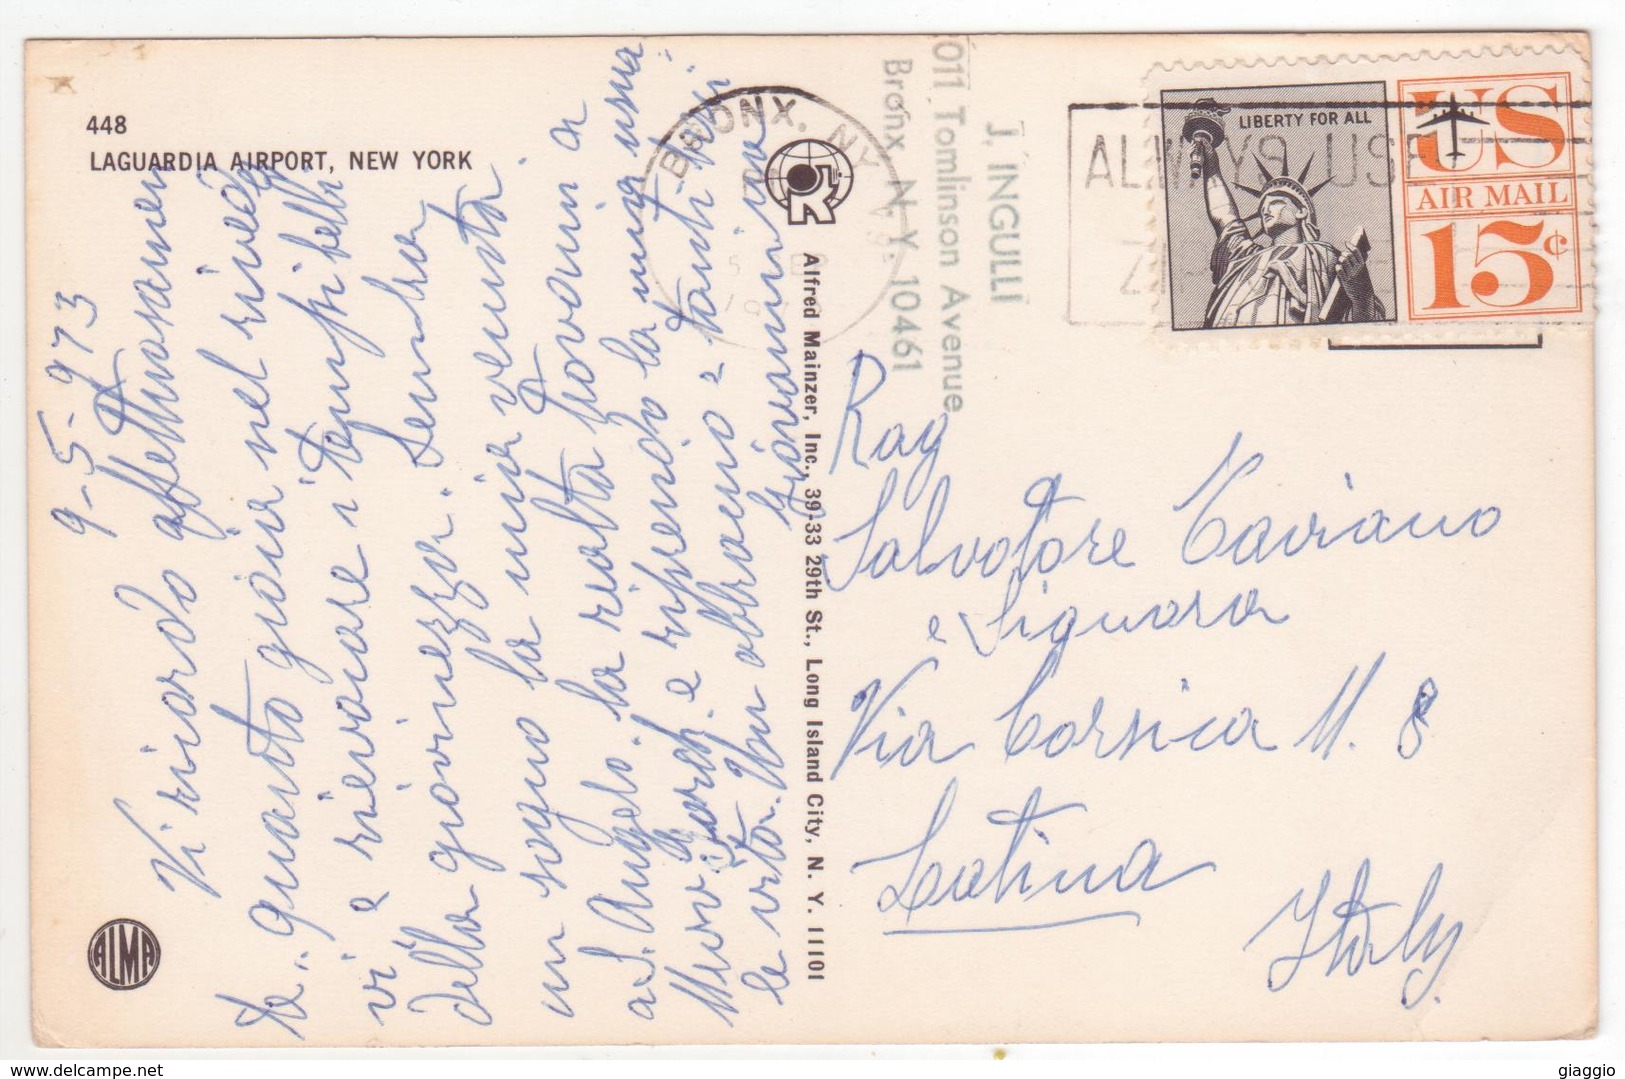 448
LAGUARDIA AIRPORT, NEW YORK
9-5-973
Vi ricordo affettuosamen
te. quanto gioia nel riveder
vi e rievocare i tempi belli
della giovinezza. Sembra
un sogno la mia venuta
a S. Angelo. la realtà trovarmi a
New York e riprendo la mia usua
le vita. Un abbraccio e tanti
Giovannina
ALMA
BRONX, NY
K
Alfred Mainzer, Inc., 39-33 29th St., Long Island City, N. Y. 11101
J. INGULLI
011 Tomlinson Avenue
Bronx N. Y. 10461
ALWAYS USE
ZIP
LIBERTY FOR ALL
US
AIR MAIL
15¢
Rag
Salvatore Taviano
e Signora
Via Corsica N. 8
Latina
Italy
giaggio